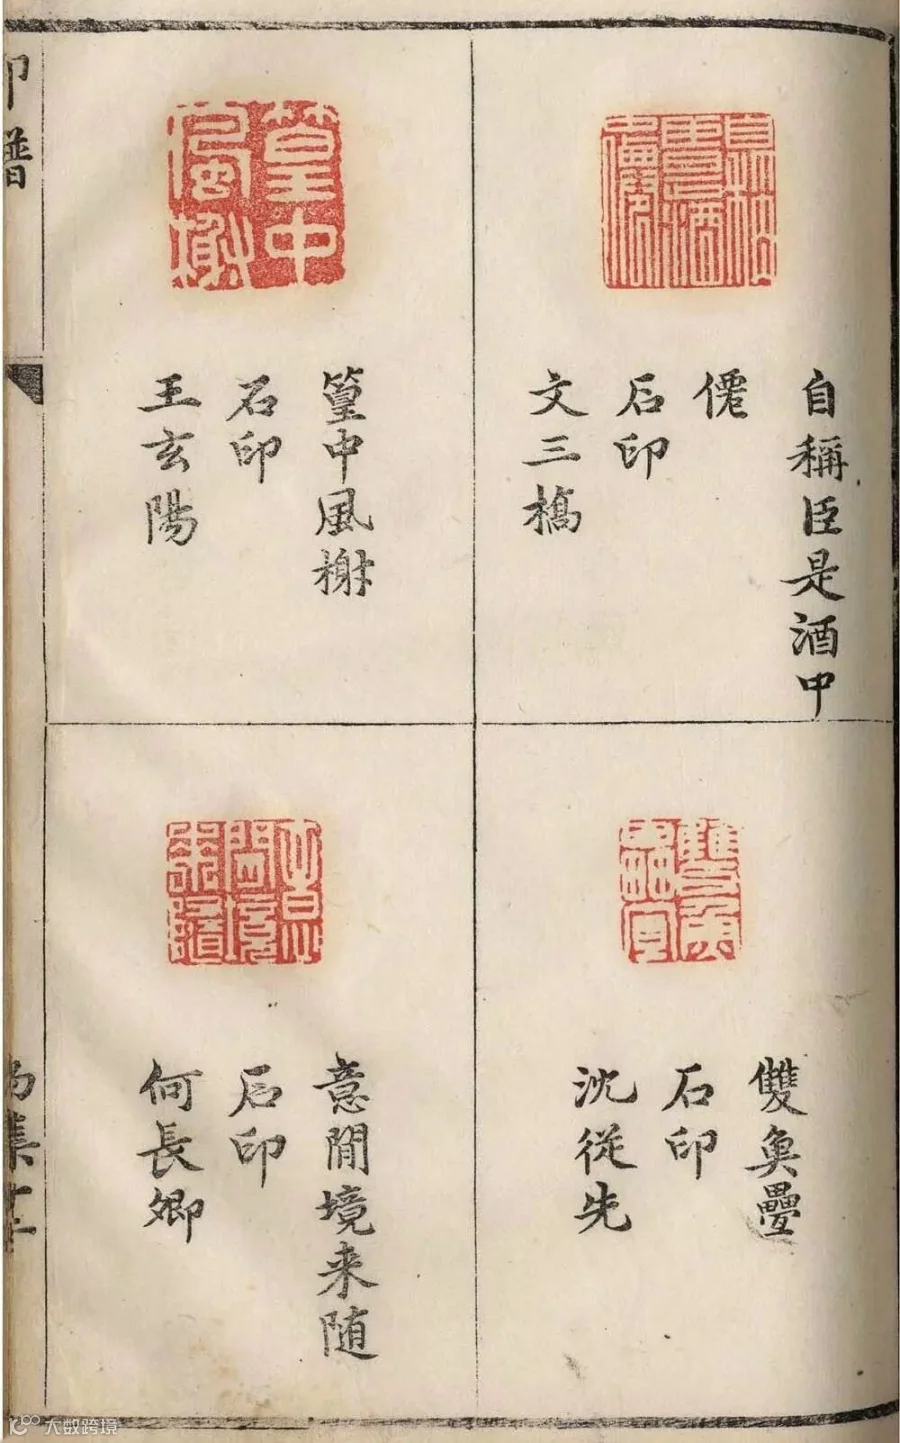 自稱臣是酒中
僊
石印
文三橋
篁中風榭
石印
王玄陽
雙奐疊
石印
沈從先
意閒境来随
石印
何長卿
印譜
大数跨境